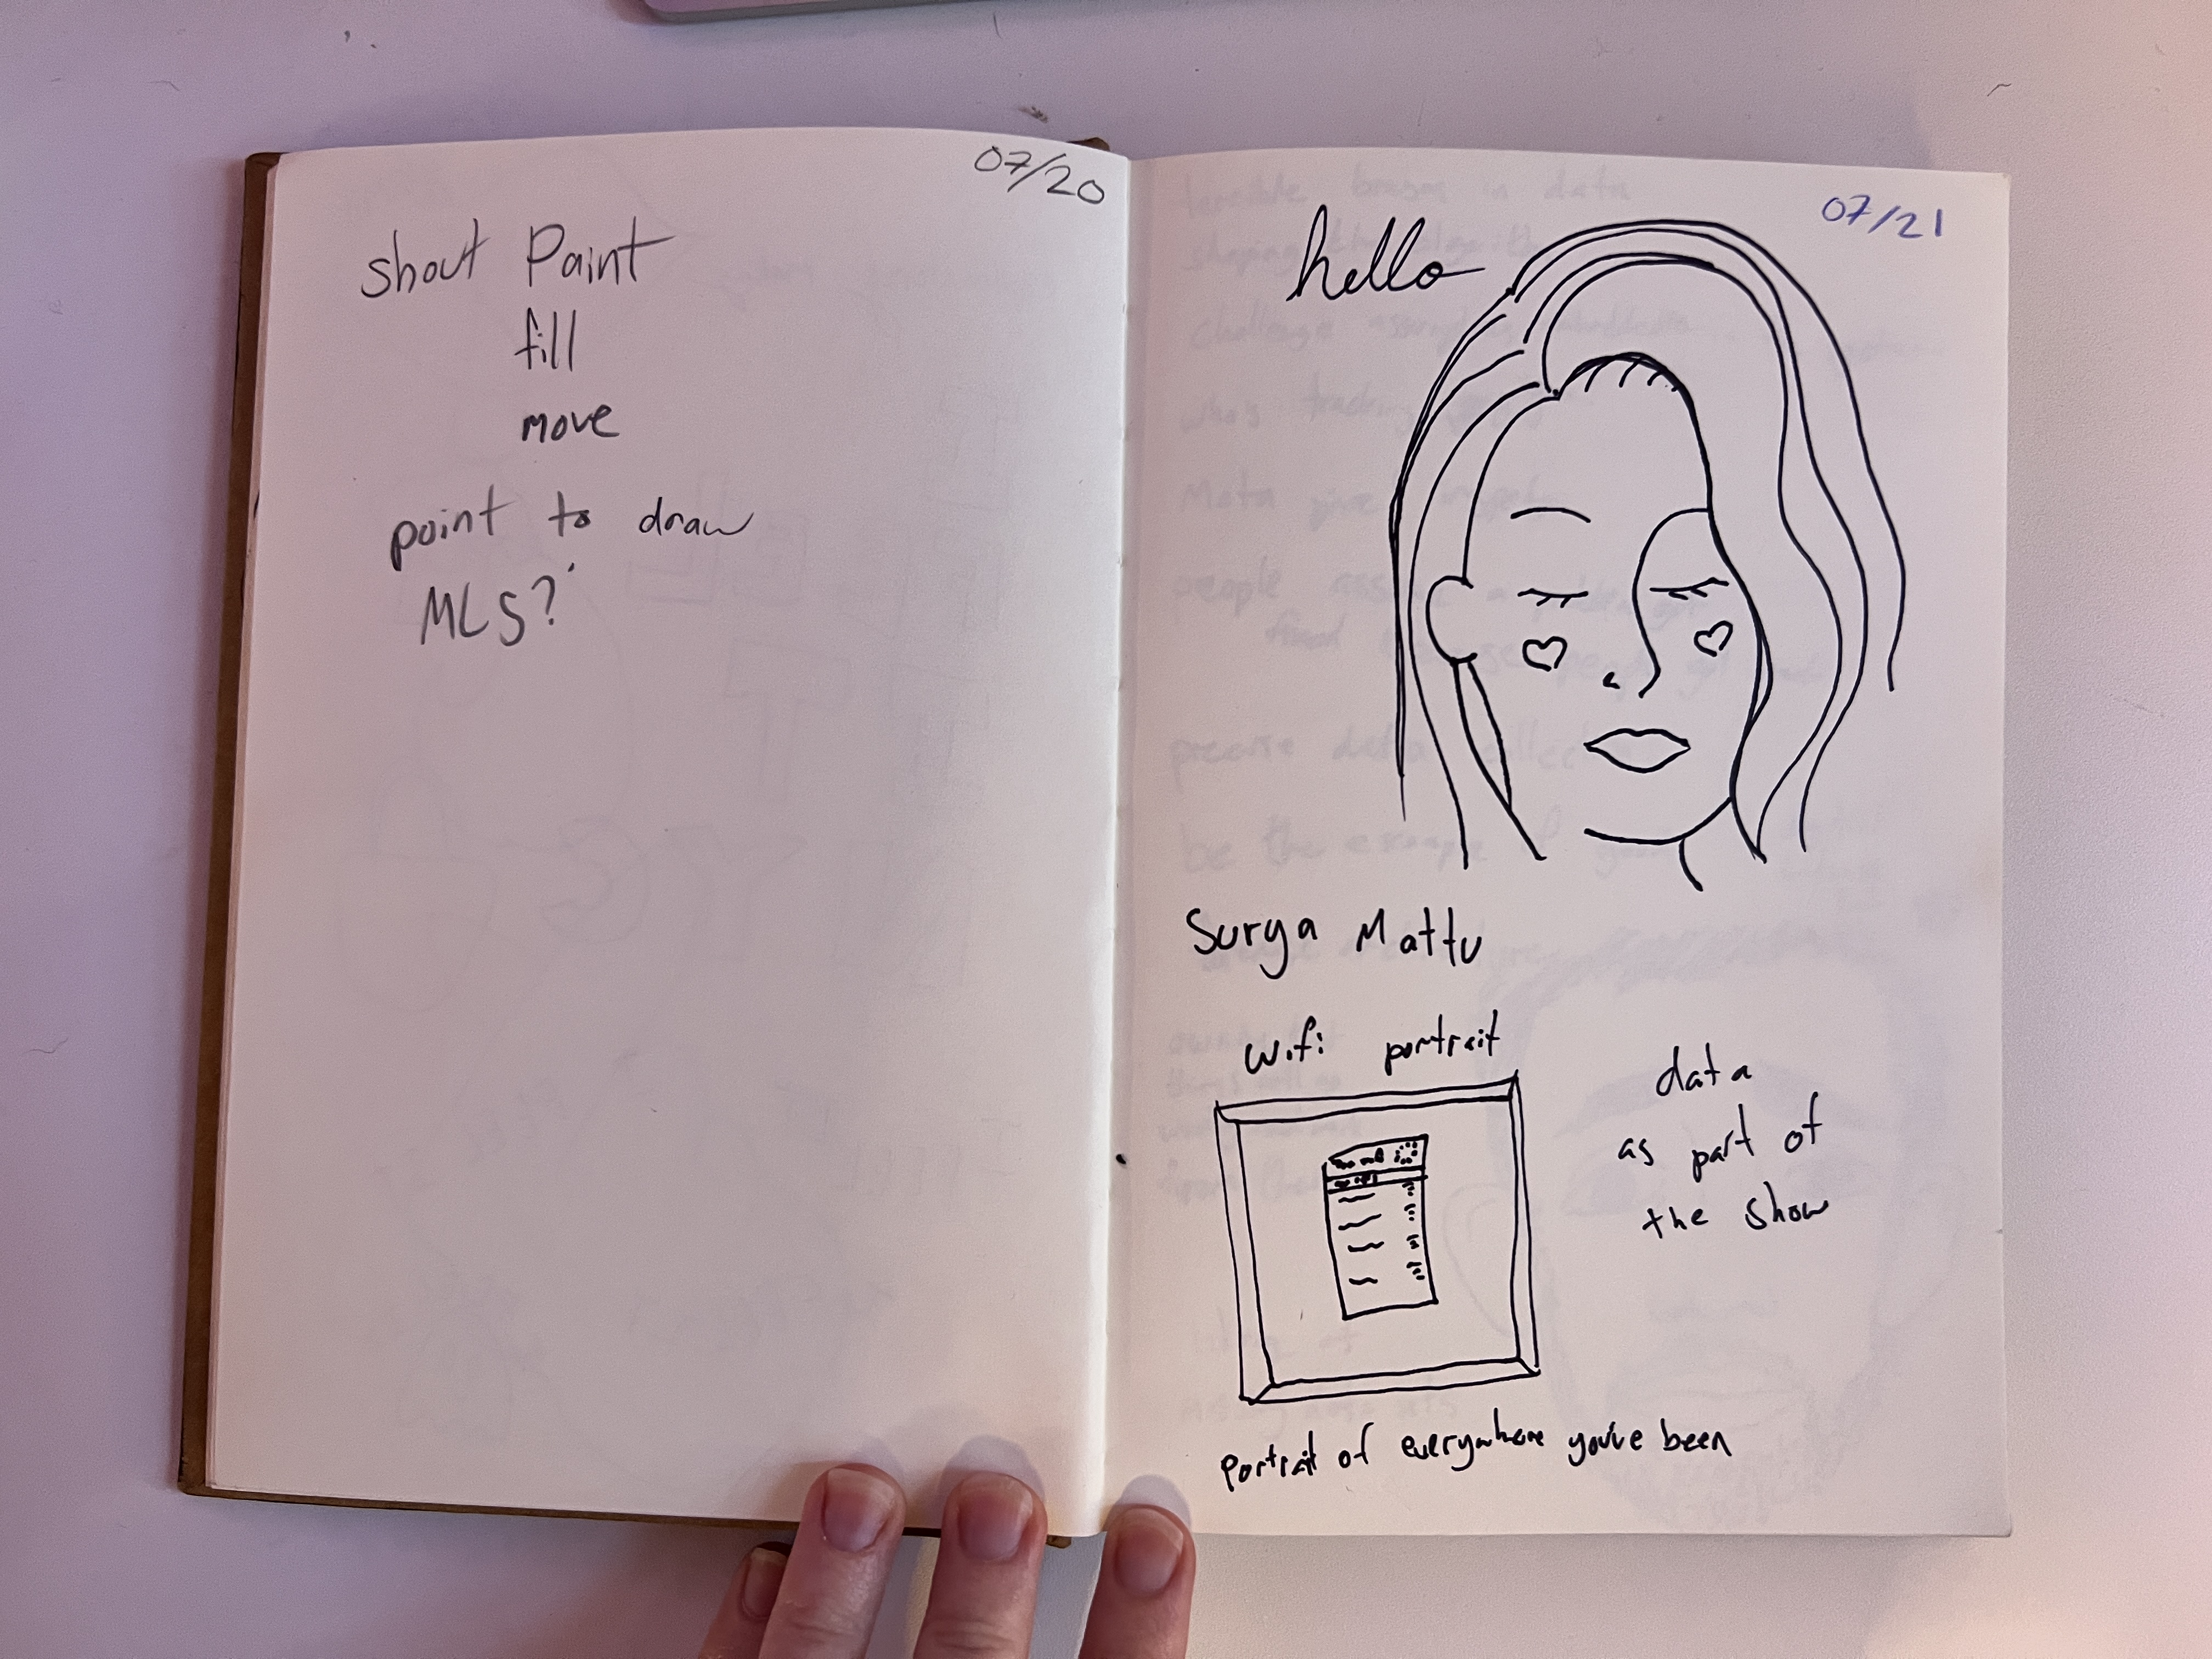 07/20
shout Paint
fill
move
point to draw
MLS?
07/21
hello
Surya Mattu
wifi portrait
data
as part of
the show
portrait of everywhere you've been